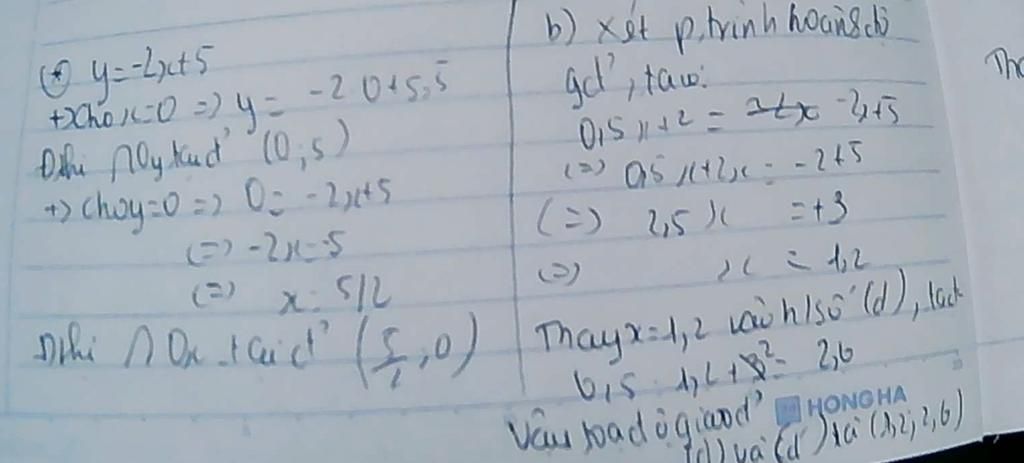 (*) y=-2x+5
+>cho x=0 => y= -2.0+5=5
Đthi ∩ Oy tại đ' (0;5)
+> cho y=0 => 0=-2x+5
(=) -2x=-5
(=) x=5/2
Đthi ∩ Ox tại đ' (5/2;0)
b) xét p.trình hoành độ
gđ', ta có:
0,5x+2 = -2x+5
(=) 0,5x+2x=-2+5
(=) 2,5x =+3
(=) x = 1,2
Thay x=1,2 vào h/số (d), ta có
0,5.1,2+2= 2,6
Vậy toạ độ giao đ'
HONG HA
(d) và (d') là (1,2;2,6)